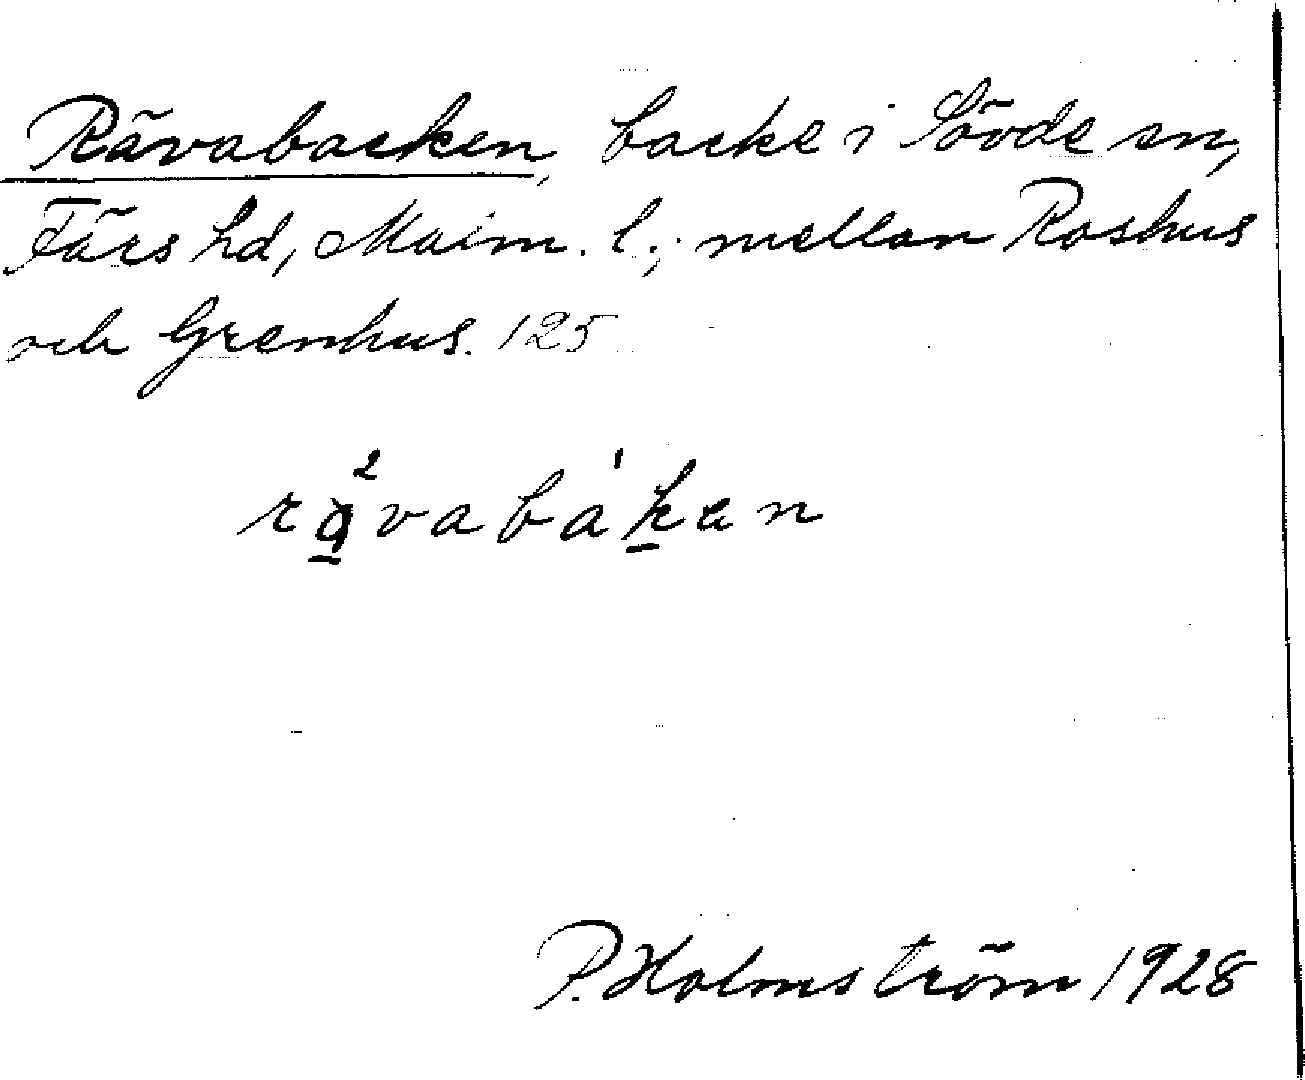 Rävabacken, backe i Sövde sn,
Färs hd, Malm. l.; mellan Roshus
och Grenhus. 125
P. Holmström 1928